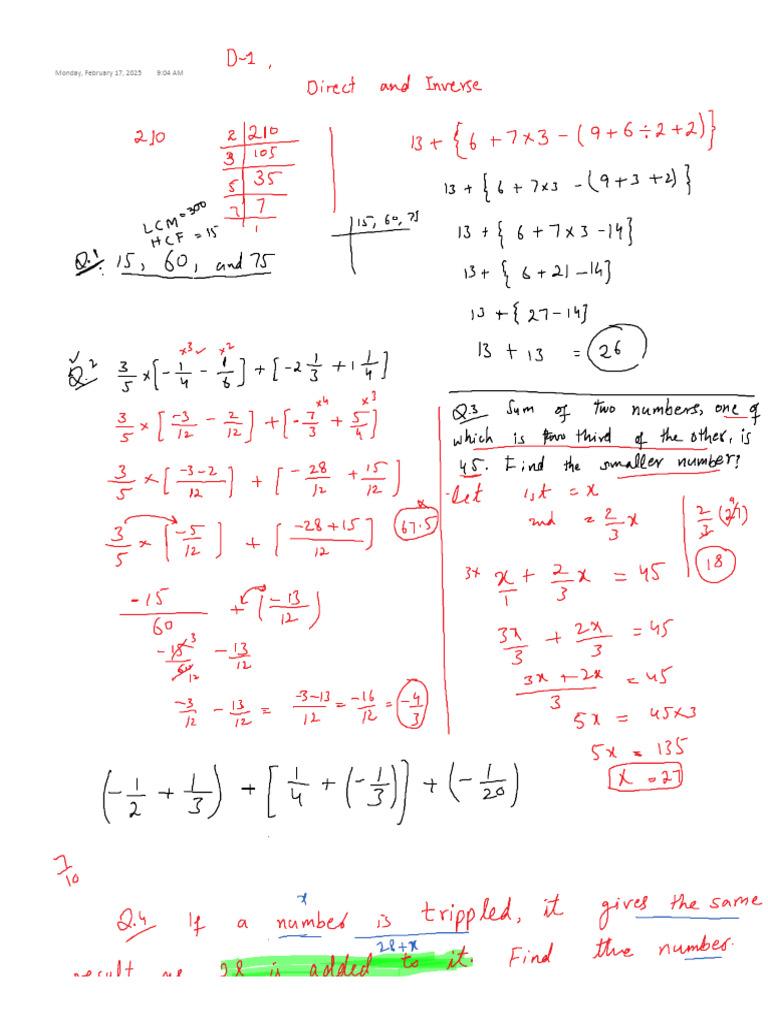 Monday, February 17, 2025 9:04 AM
D-1,
Direct and Inverse
210
2 | 210
3 | 105
5 | 35
7 | 7
1
LCM = 300
HCF = 15
15, 60, 75
Q.1 15, 60, and 75
13 + { 6 + 7 × 3 - ( 9 + 6 ÷ 2 + 2 ) }
13 + { 6 + 7×3 - ( 9 + 3 + 2 ) }
13 + { 6 + 7 × 3 - 14 }
13 + { 6 + 21 - 14 }
13 + { 27 - 14 }
13 + 13 = 26
✓
Q.2 3/5 × [ - 1/4 - 1/6 ] + [ -2 1/3 + 1 1/4 ]
×3 ✓ ×2
3/5 × [ -3/12 - 2/12 ] + [ - 7/3 + 5/4 ]
×4 ×3
3/5 × [ -3-2/12 ] + [ - 28/12 + 15/12 ]
3/5 × [ -5/12 ] + [ -28+15/12 ]
-15/60 + ( -13/12 )
-15/60 - 13/12
3
12
-3/12 - 13/12 = -3-13/12 = -16/12 = -4/3
Q.3 Sum of two numbers, one of
which is two third of the other, is
45. Find the smaller number?
Let 1st = x
2nd = 2/3 x
67.5 ×
2/3 (27)
9
18
3× x/1 + 2/3 x = 45
3x/3 + 2x/3 = 45
3x + 2x/3 = 45
5x = 45×3
5x = 135
x = 27
( - 1/2 + 1/3 ) + [ 1/4 + ( - 1/3 ) ] + ( - 1/20 )
7/10
x
Q.4 If a number is trippled, it gives the same
28+x
result as 28 is added to it. Find the number.